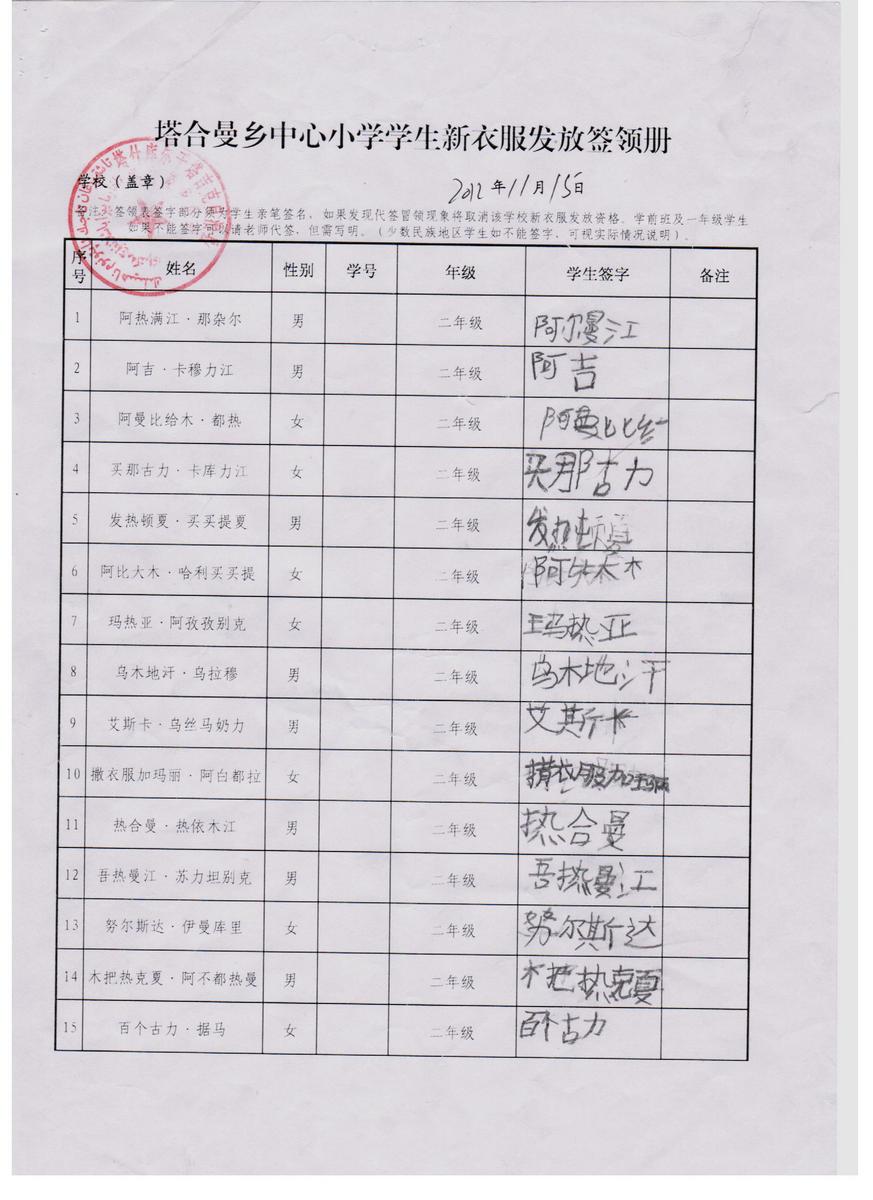 塔合曼乡中心小学学生新衣服发放签领册
学校（盖章） 2012年11月15日
备注：签领表签字部分须为学生亲笔签名，如果发现代签冒领现象将取消该学校新衣服发放资格。学前班及一年级学生
如果不能签字可以请老师代签，但需写明。（少数民族地区学生如不能签字，可视实际情况说明）。
序号 姓名 性别 学号 年级 学生签字 备注
1 阿热满江·那杂尔 男 二年级 阿尔曼江
2 阿吉·卡穆力江 男 二年级 阿吉
3 阿曼比给木·都热 女 二年级 阿曼比
4 买那古力·卡库力江 女 二年级 买那古力
5 发热顿夏·买买提夏 男 二年级 发热顿夏
6 阿比大木·哈利买买提 女 二年级 阿
7 玛热亚·阿孜孜别克 女 二年级 玛热亚
8 乌木地汗·乌拉穆 男 二年级 乌木地汗
9 艾斯卡·乌丝马奶力 男 二年级 艾斯卡
10 撒衣服加玛丽·阿白都拉 女 二年级 衣服加玛
11 热合曼·热依木江 男 二年级 热合曼
12 吾热曼江·苏力坦别克 男 二年级 吾热曼江
13 努尔斯达·伊曼库里 女 二年级 努尔斯达
14 木把热克夏·阿不都热曼 男 二年级 木把热克夏
15 百个古力·据马 女 二年级 百个古力